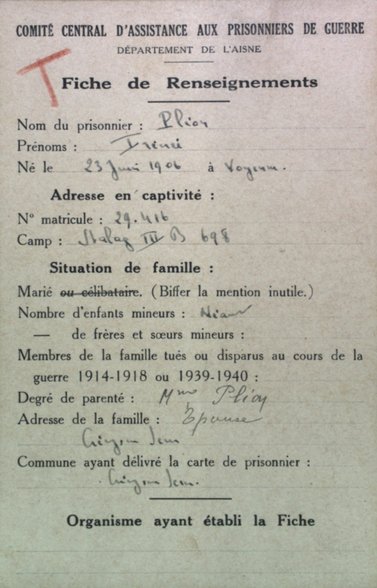 COMITÉ CENTRAL D'ASSISTANCE AUX PRISONNIERS DE GUERRE
DÉPARTEMENT DE L'AISNE
T
Fiche de Renseignements
Nom du prisonnier : Plion
Prénoms : Irénée
Né le 23 Juin 1906 à
Adresse en captivité :
N° matricule : 29.416
Camp : Stalag III B 698
Situation de famille :
Marié ou célibataire. (Biffer la mention inutile.)
Nombre d'enfants mineurs : Néant
— de frères et sœurs mineurs :
Membres de la famille tués ou disparus au cours de la
guerre 1914-1918 ou 1939-1940 :
Degré de parenté : Mme Plion
Adresse de la famille : Epouse
Commune ayant délivré la carte de prisonnier :
Organisme ayant établi la Fiche